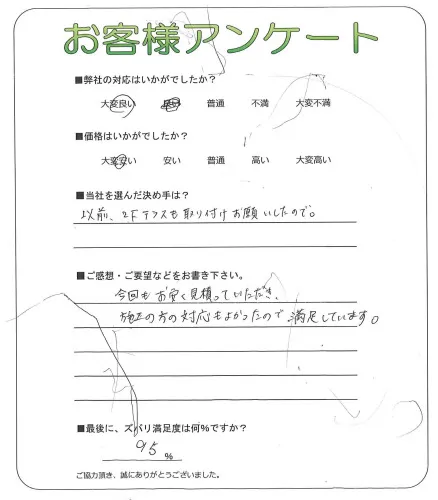 お客様アンケート
■弊社の対応はいかがでしたか?
大変良い 良い 普通 不満 大変不満
■価格はいかがでしたか?
大変安い 安い 普通 高い 大変高い
■当社を選んだ決め手は?
以前、2Fテラスも取り付けお願いしたので。
■ご感想・ご要望などをお書き下さい。
今回もお安く見積っていただき、
施工の方の対応もよかったので満足しています。
■最後に、ズバリ満足度は何%ですか?
95 %
ご協力頂き、誠にありがとうございました。